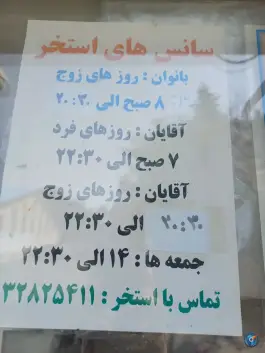 سانس های استخر
بانوان : روز های زوج
۸ صبح الی ۲۰:۳۰
آقایان : روزهای فرد
۷ صبح الی ۲۲:۳۰
آقایان : روزهای زوج
۲۰:۳۰ الی ۲۲:۳۰
جمعه ها : ۱۴ الی ۲۲:۳۰
تماس با استخر : ۳۲۸۲۵۴۱۱